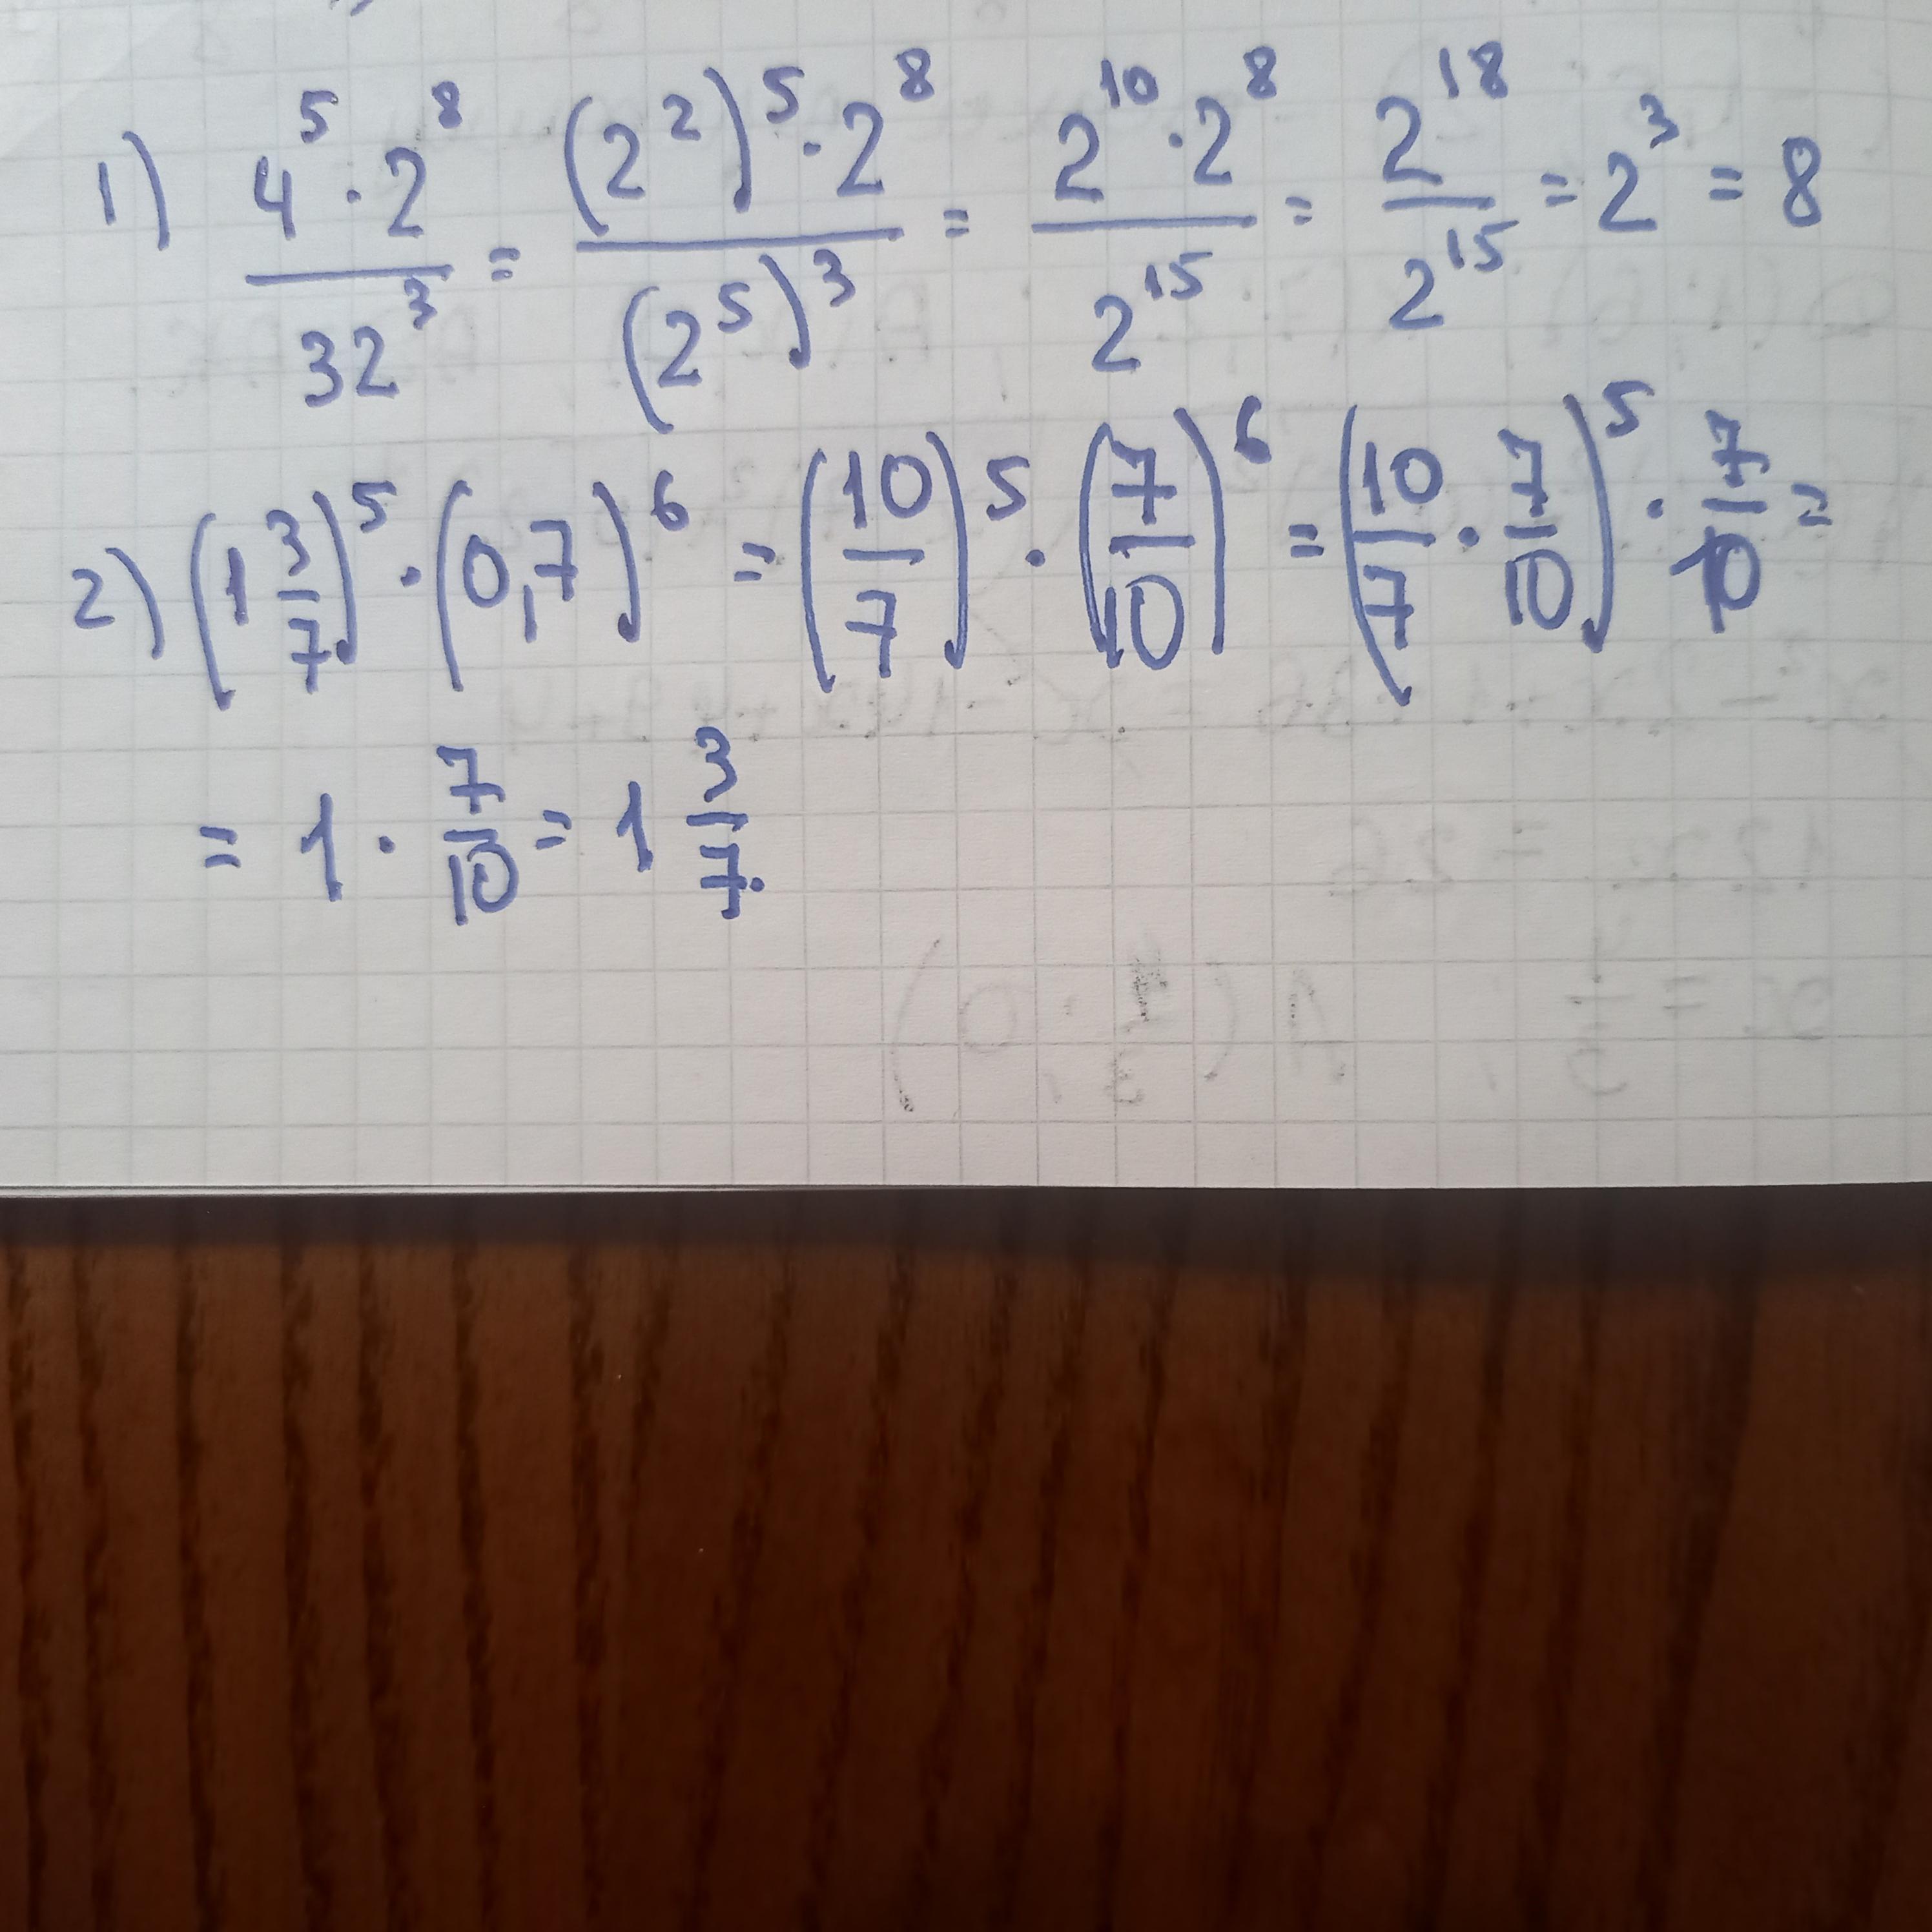 1) 4⁵ · 2⁸ / 32³ = (2²)⁵ · 2⁸ / (2⁵)³ = 2¹⁰ · 2⁸ / 2¹⁵ = 2¹⁸ / 2¹⁵ = 2³ = 8
2) (1 3/7)⁵ · (0,7)⁶ = (10/7)⁵ · (7/10)⁶ = (10/7 · 7/10)⁵ · 7/10 =
= 1 · 7/10 = 1 3/7.